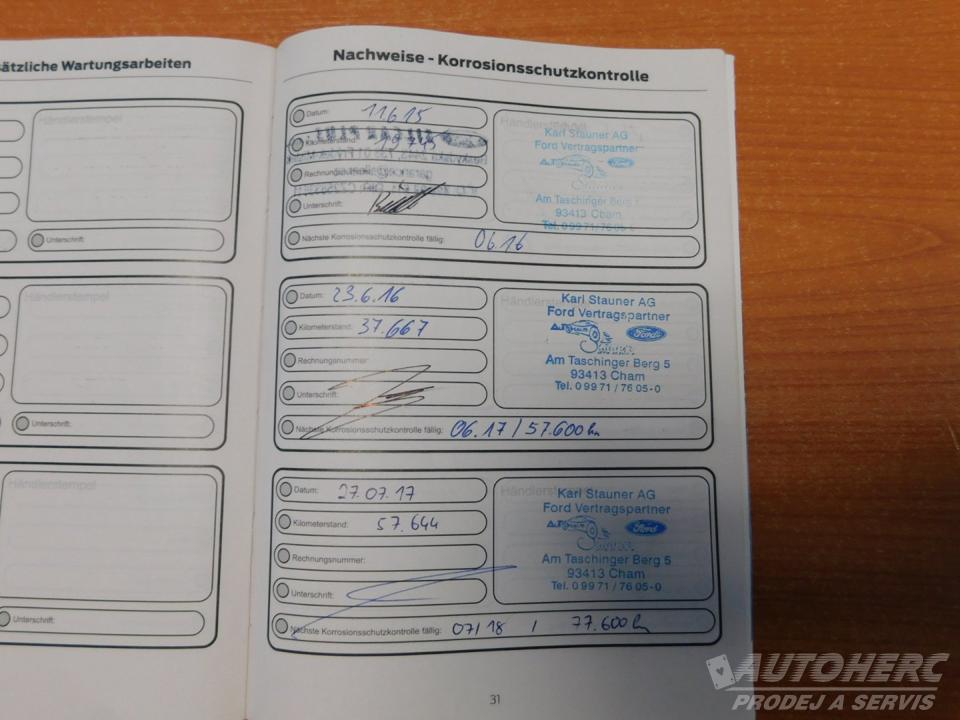 sätzliche Wartungsarbeiten
Händlerstempel
Unterschrift:
Händlerstempel
Unterschrift:
Händlerstempel
Unterschrift:
Nachweise - Korrosionsschutzkontrolle
Datum: 11.6.15
Kilometerstand: 19.745
Rechnungsnummer:
Unterschrift:
Nächste Korrosionsschutzkontrolle fällig: 06.16
Händlerstempel
Karl Stauner AG
Ford Vertragspartner
Ford
Am Taschinger Berg 5
93413 Cham
Tel. 0 99 71 / 76 05-0
Datum: 23.6.16
Kilometerstand: 37.667
Rechnungsnummer:
Unterschrift:
Nächste Korrosionsschutzkontrolle fällig: 06.17 / 57.600 km
Händlerstempel
Karl Stauner AG
Ford Vertragspartner
AUTOHAUS Stauner Ford
Am Taschinger Berg 5
93413 Cham
Tel. 0 99 71 / 76 05-0
Datum: 27.07.17
Kilometerstand: 57.644
Rechnungsnummer:
Unterschrift:
Nächste Korrosionsschutzkontrolle fällig: 07/18 / 77.600 km
Händlerstempel
Karl Stauner AG
Ford Vertragspartner
AUTOHAUS Stauner Ford
Am Taschinger Berg 5
93413 Cham
Tel. 0 99 71 / 76 05-0
31
AUTOHERC
PRODEJ A SERVIS